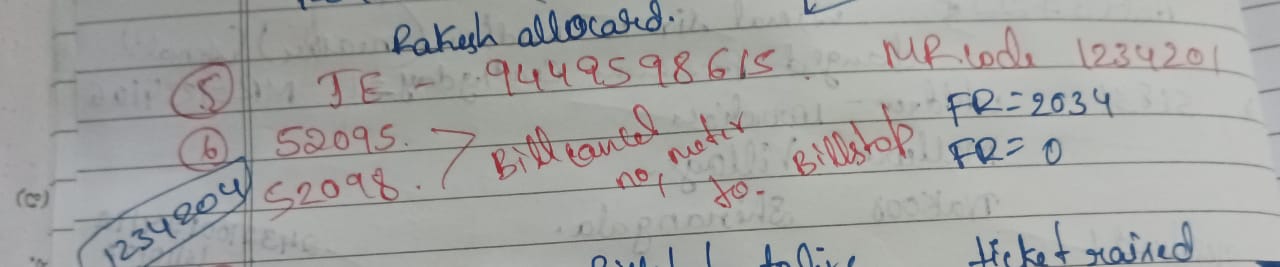 Rakesh allocated.
5 JE - 9449598615. MR code 1234201
6 52095. > Bill cancel FR = 2034
52098. no meter so. Billstop FR = 0
1234204
ticket raised